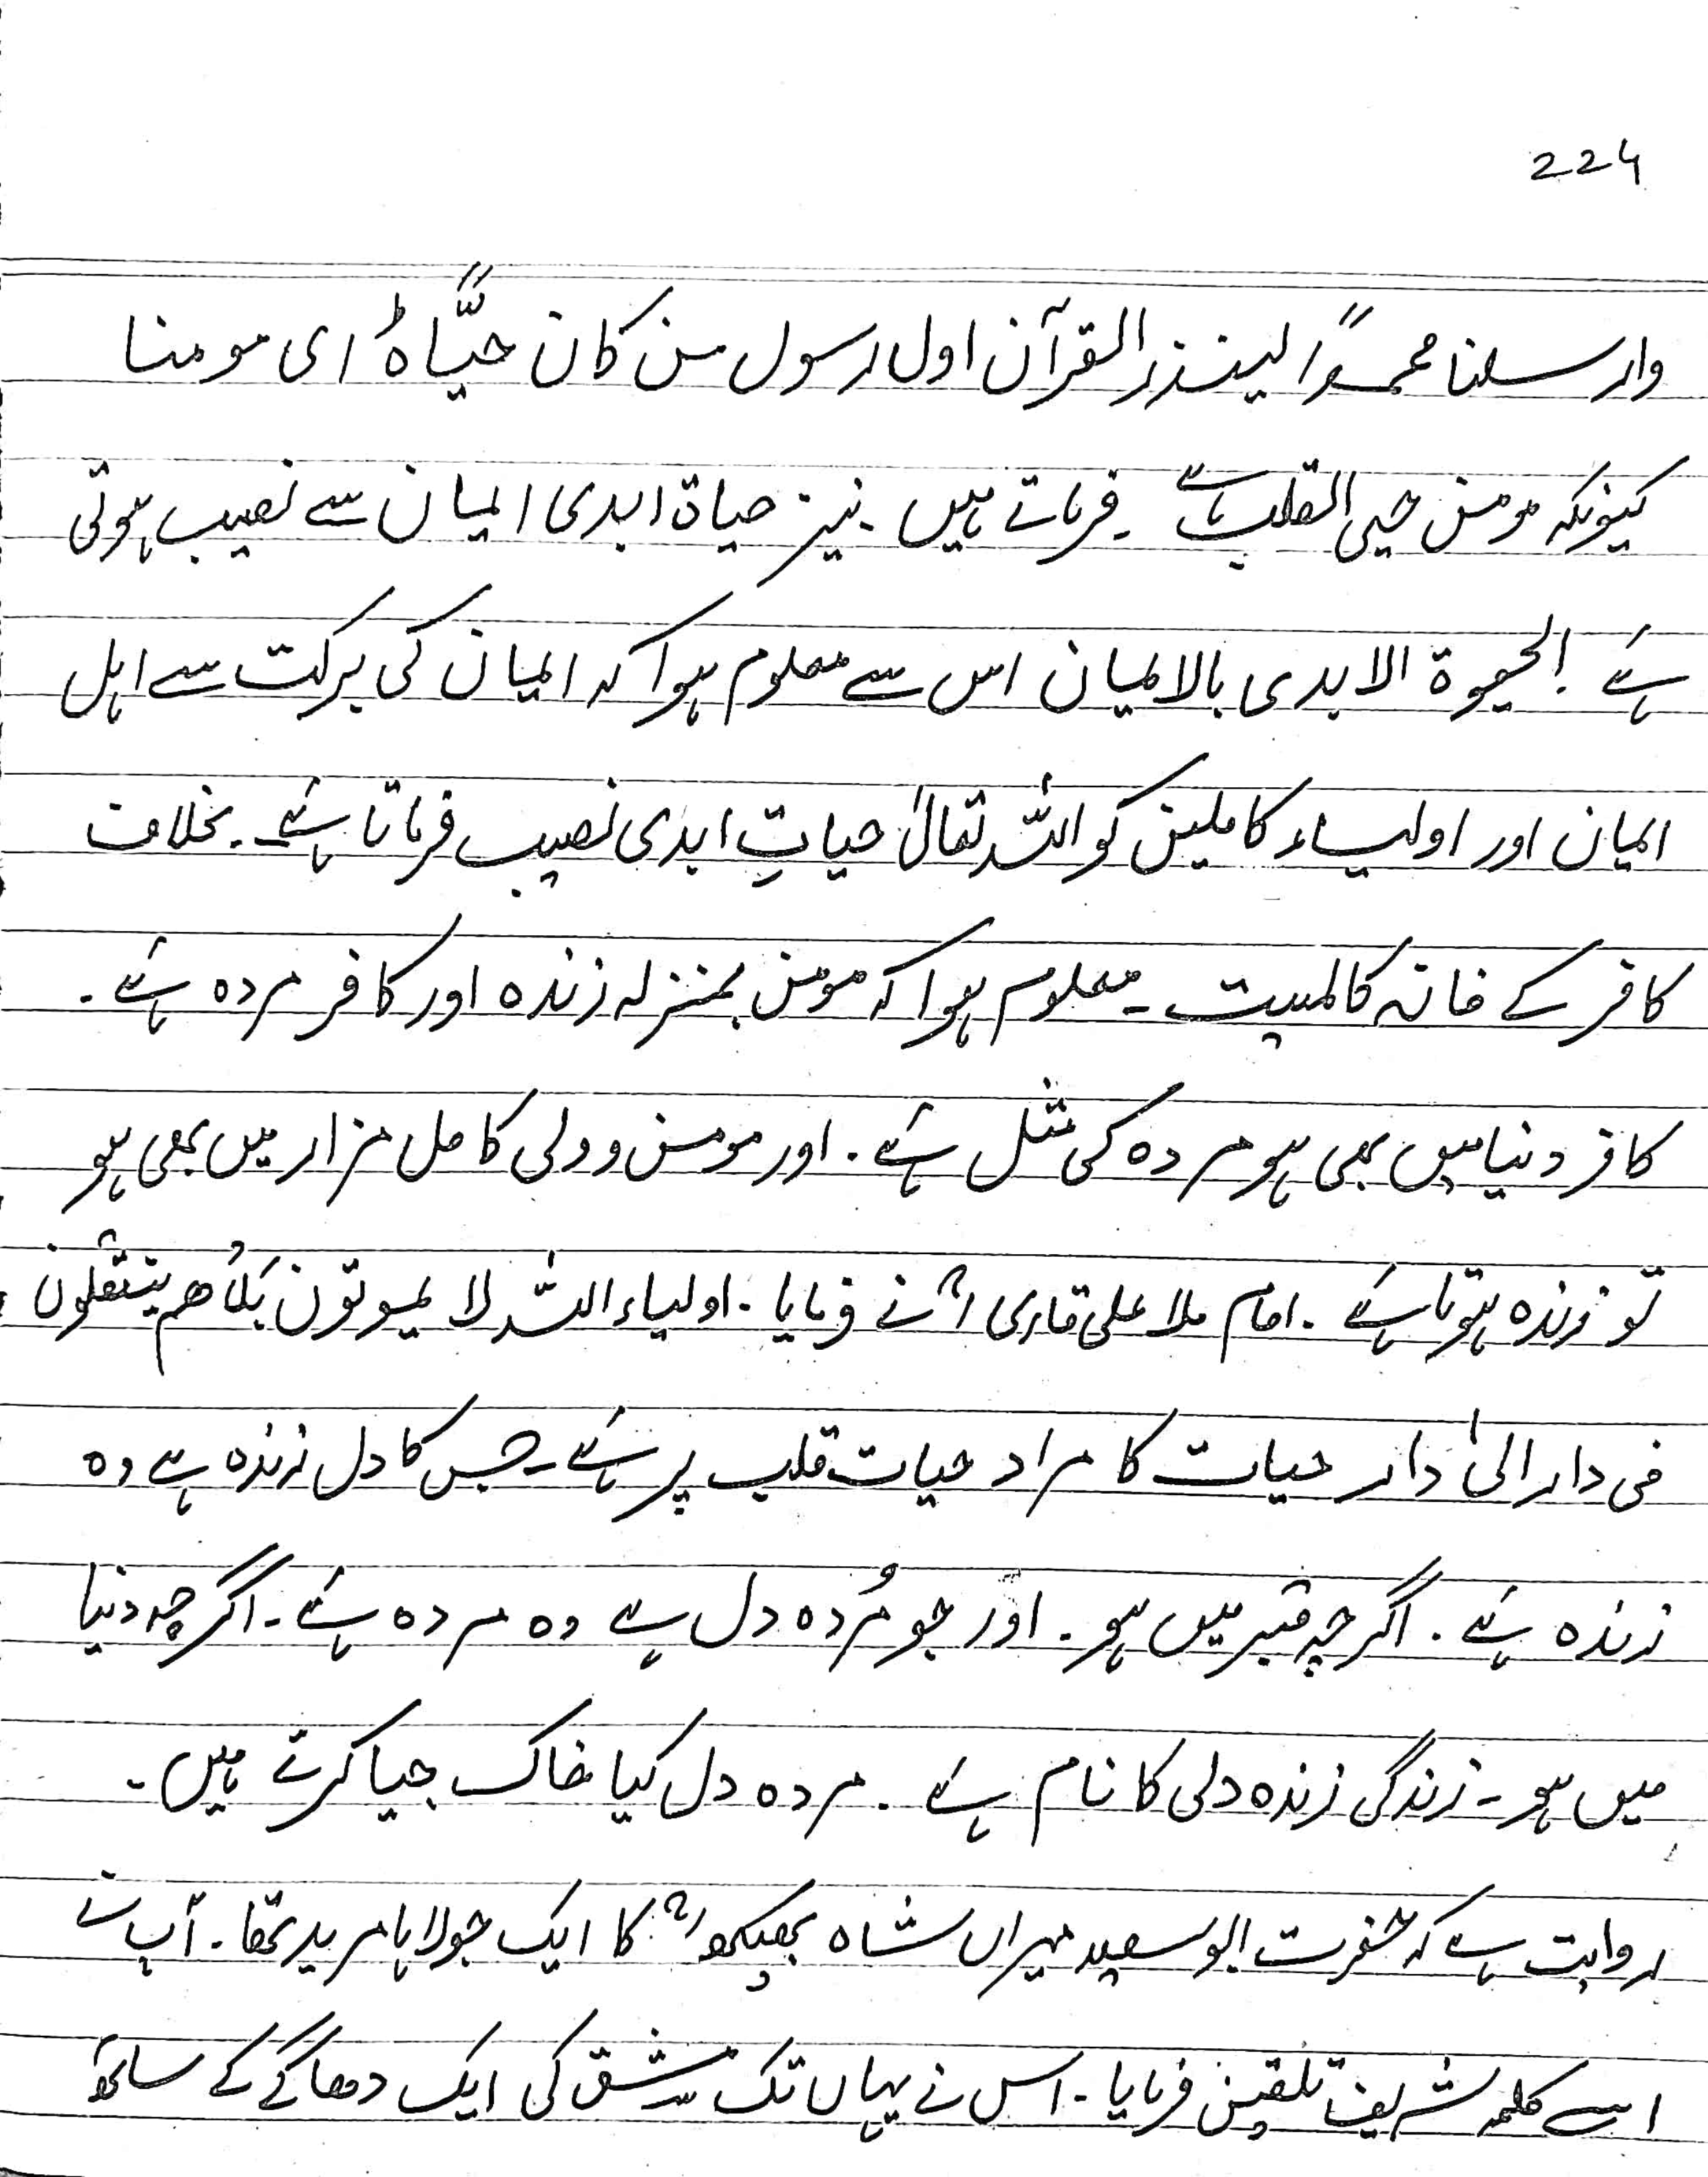 224
وارسلنا محمدًا لینذر القرآن اول رسول من کان حیًّاہٗ ای مومنا
کیونکہ مومن حیی القلب ہے ۔ فرماتے ہیں ۔ نیز حیاۃ ابدی ایمان سے نصیب ہوتی
ہے ۔ الحیوۃ الابدی بالایمان اس سے معلوم ہوا کہ ایمان کی برکت سے اہل
ایمان اور اولیاء کاملین کو اللہ تعالیٰ حیاتِ ابدی نصیب فرماتا ہے ۔ بخلاف
کافر کے فانہ کالمیت ۔ معلوم ہوا کہ مومن بمنزلہ زندہ اور کافر مردہ ہے ۔
کافر دنیا میں بھی ہو مردہ کی مثل ہے ۔ اور مومن و ولی کامل مزار میں بھی ہو
تو زندہ ہوتا ہے ۔ امام ملا علی قاریؒ نے فرمایا ۔ اولیاء اللہ لا یموتون بلکہ ھم ینتقلون
من دار الیٰ دار حیات کا مراد حیات قلب پر ہے ۔ جس کا دل زندہ ہے وہ
زندہ ہے ۔ اگرچہ قبر میں ہو ۔ اور جو مُردہ دل ہے وہ مردہ ہے ۔ اگرچہ دنیا
میں ہو ۔ زندگی زندہ دلی کا نام ہے ۔ مردہ دل کیا خاک جیا کرتے ہیں ۔
روایت ہے کہ حضرت ابوسعید میراں شاہ بھیکھؒ کا ایک جولاہا مرید تھا ۔ آپ نے
اسے کلمہ شریف تلقین فرمایا ۔ اس نے یہاں تک مشق کی ایک دھاگے کے ساتھ